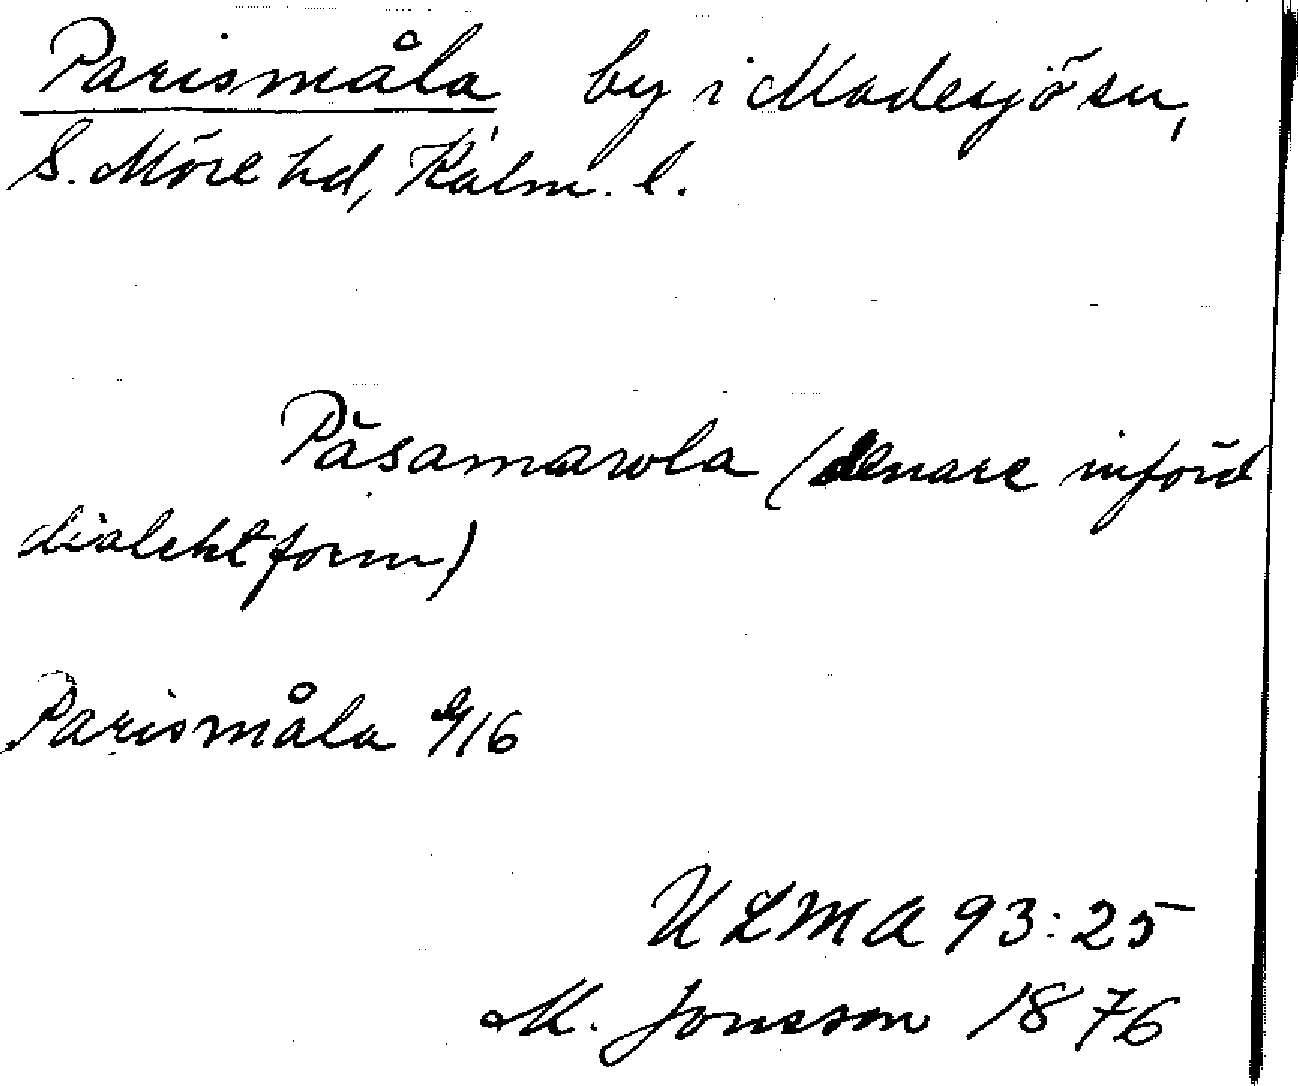 Parismåla by i Madesjö sn,
S. Möre hd, Kalm. l.
Påsamarola (senare införd
dialektform)
Parismåla 9/16
ULMA 93:25
M. Jonsson 1876